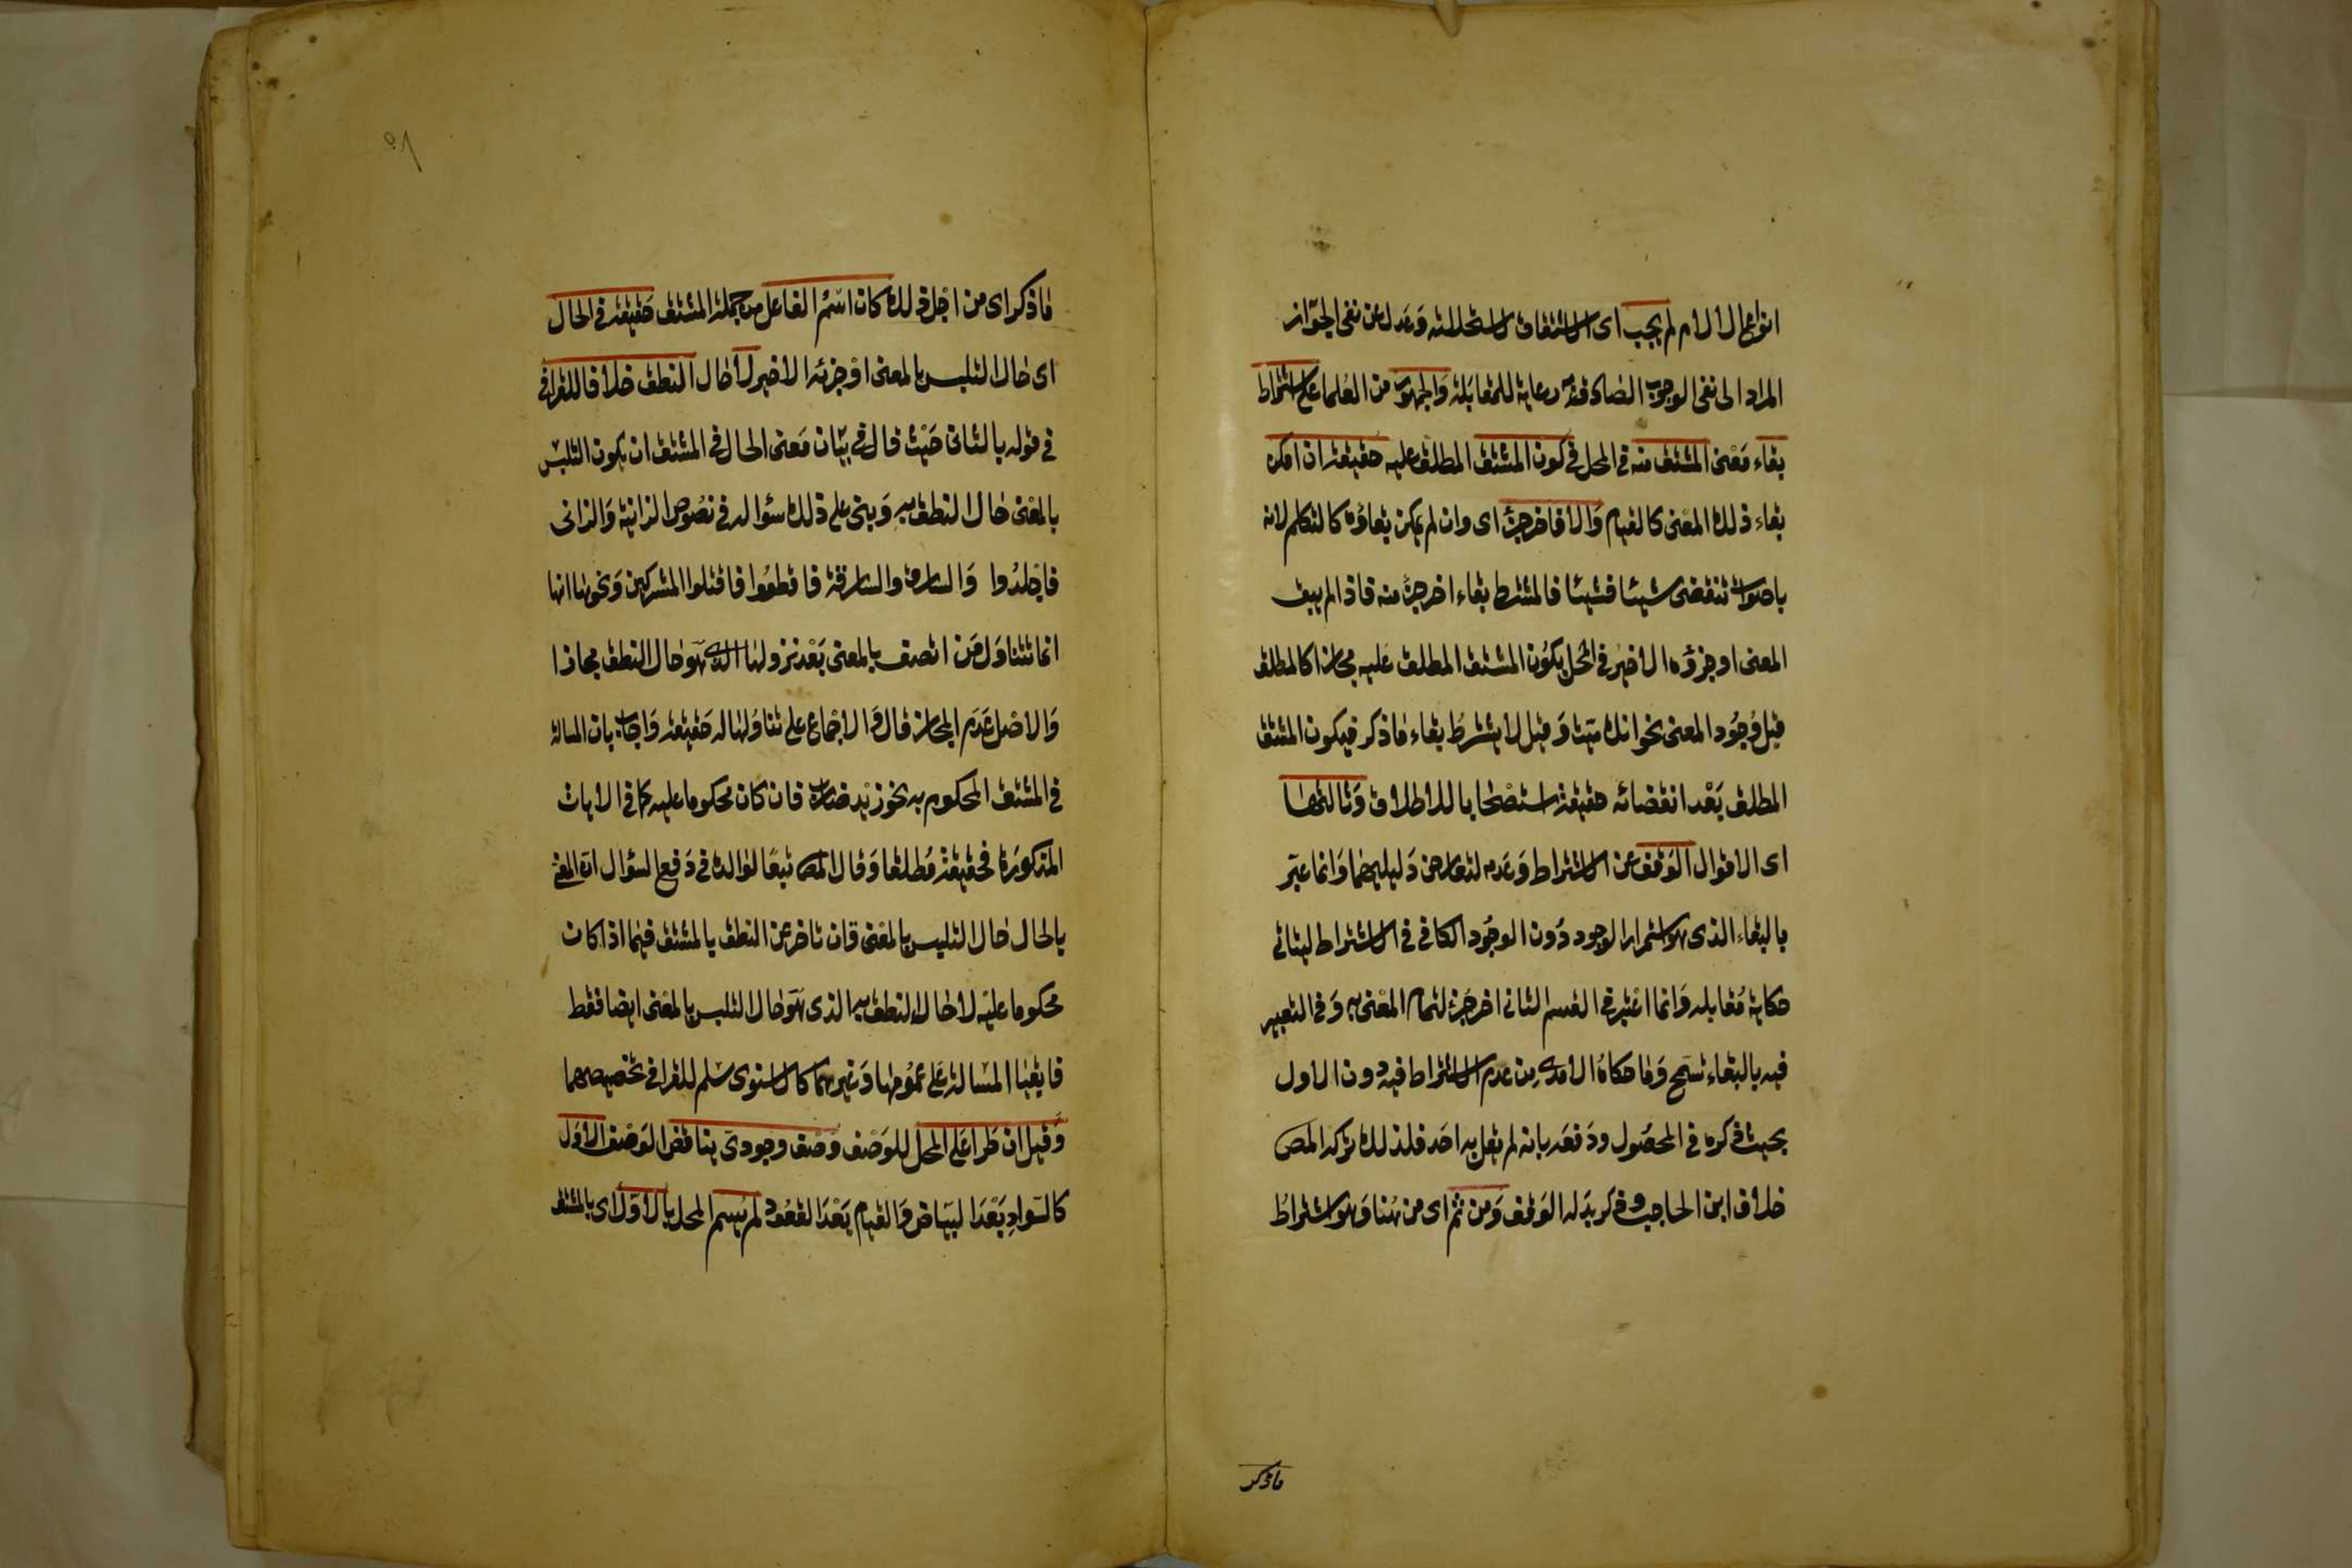 انواع الالام لم يجب اى الاشتقاق لاستحالته وعدل عن نفى الجواز
المراد الى نفى الوجوب الصادق به رعاية للمقابلة والجمهور من العلما على اشتراط
بقاء معنى المشتق منه فى المحل فى كون المشتق المطلق عليه حقيقة ان امكن
بقاء ذلك المعنى كالقيام والا فاخر جزء اى وان لم يمكن بقاؤه كالتكلم لانه
باصوات تنقضى شيئا فشيئا فالمشترط بقاء اخر جزء منه فاذا لم يبق
المعنى او جزؤه الاخير فى المحل يكون المشتق المطلق عليه مجازا كالمطلق
قبل وجود المعنى نحو انك ميت وقيل لا يشترط بقاء ماذكر فيكون المشتق
المطلق بعد انقضائه حقيقة استصحابا للاطلاق وثالثها
اى الاقوال الوقف عن الاشتراط وعدمه لتعارض دليليهما وانما عبر
بالبقاء الذى هو استمرار الوجود دون الوجود الكافى فى الاشتراط ليتاتى
حكاية مقابله وانما اعتبر فى القسم الثانى اخر جزء لتمام المعنى به وفى التعبير
فيه بالبقاء تسمح وما حكاه الامدى من عدم الاشتراط فيه دون الاول
بحيث ذكره فى المحصول ودفعه بانه لم يقل به احد فلذلك تركه المص
خلاف ابن الحاجب وذكر بدله الوقف ومن ثم اى من هنا وهو اشتراط
ماذكر
٨٥
ماذكر اى من اجل ذلك كان اسم الفاعل من جملة المشتق حقيقة فى الحال
اى حال التلبس بالمعنى او جزئه الاخير لا حال النطق خلافا للقرافى
فى قوله بالثانى حيث قال فى بيان معنى الحال فى المشتق ان يكون التلبس
بالمعنى حال النطق به وبنى على ذلك سؤاله فى نصوص الزانية والزانى
فاجلدوا والسارق والسارقة فاقطعوا فاقتلوا المشركين ونحوها انها
انما تتناول من اتصف بالمعنى بعد نزولها الذى هو حال النطق مجازا
والاصل عدم المجاز قال والاجماع على تناولها له حقيقة واجاب بان المسالة
فى المشتق المحكوم به نحو زيد ضارب فان كان محكوما عليه كما فى الايات
المذكورة فحقيقة مطلقا وقال المص تبعا لوالده فى دفع السؤال ان المعنى
بالحال حال التلبس بالمعنى وان تاخر عن النطق بالمشتق فيما اذا كان
محكوما عليه لا حال النطق به الذى هو حال التلبس بالمعنى ايضا فقط
فابقيا المسالة على عمومها وغيرهما كالاسنوى سلم للقرافى تخصيصها
وقيل ان طرا على المحل للوصف وصف وجودى يناقض الوصف الاول
كالسواد بعد البياض والقيام بعد القعود لم يسم المحل بالاول اى بالمشتق